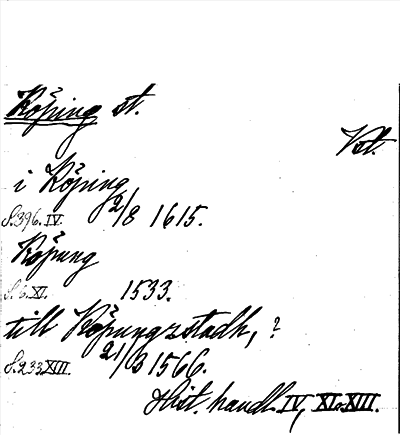 Köping st.
Vstl.
i Köping
S. 396. IV. 2/8 1615.
Köpung
S. 6. XI. 1533.
till Köpungzstadh, ?
S. 233 XIII. 21/3 1566.
Hist. handl. IV, XI, XIII.